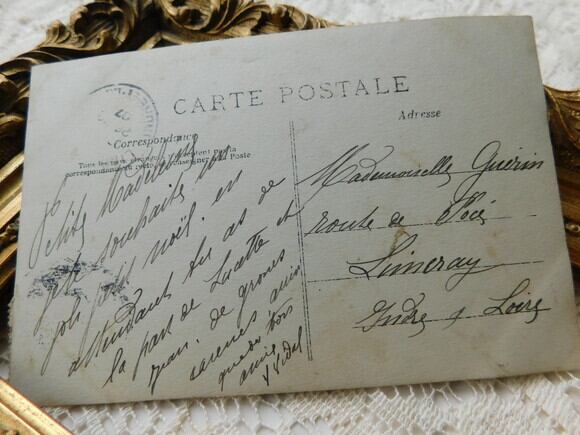 CARTE POSTALE
Correspondance
Tous les pays étrangers n'acceptent pas la
correspondance au recto se renseigner à la Poste
Adresse
Petite Madeleine
je te souhaite un
joli petit noël. en
attendant tu as de
la part de Lucette et
Jean, de grosses
caresses ainsi
que des bons
amis
Vidal
Mademoiselle Guérin
route de
Limeray
Indre & Loire